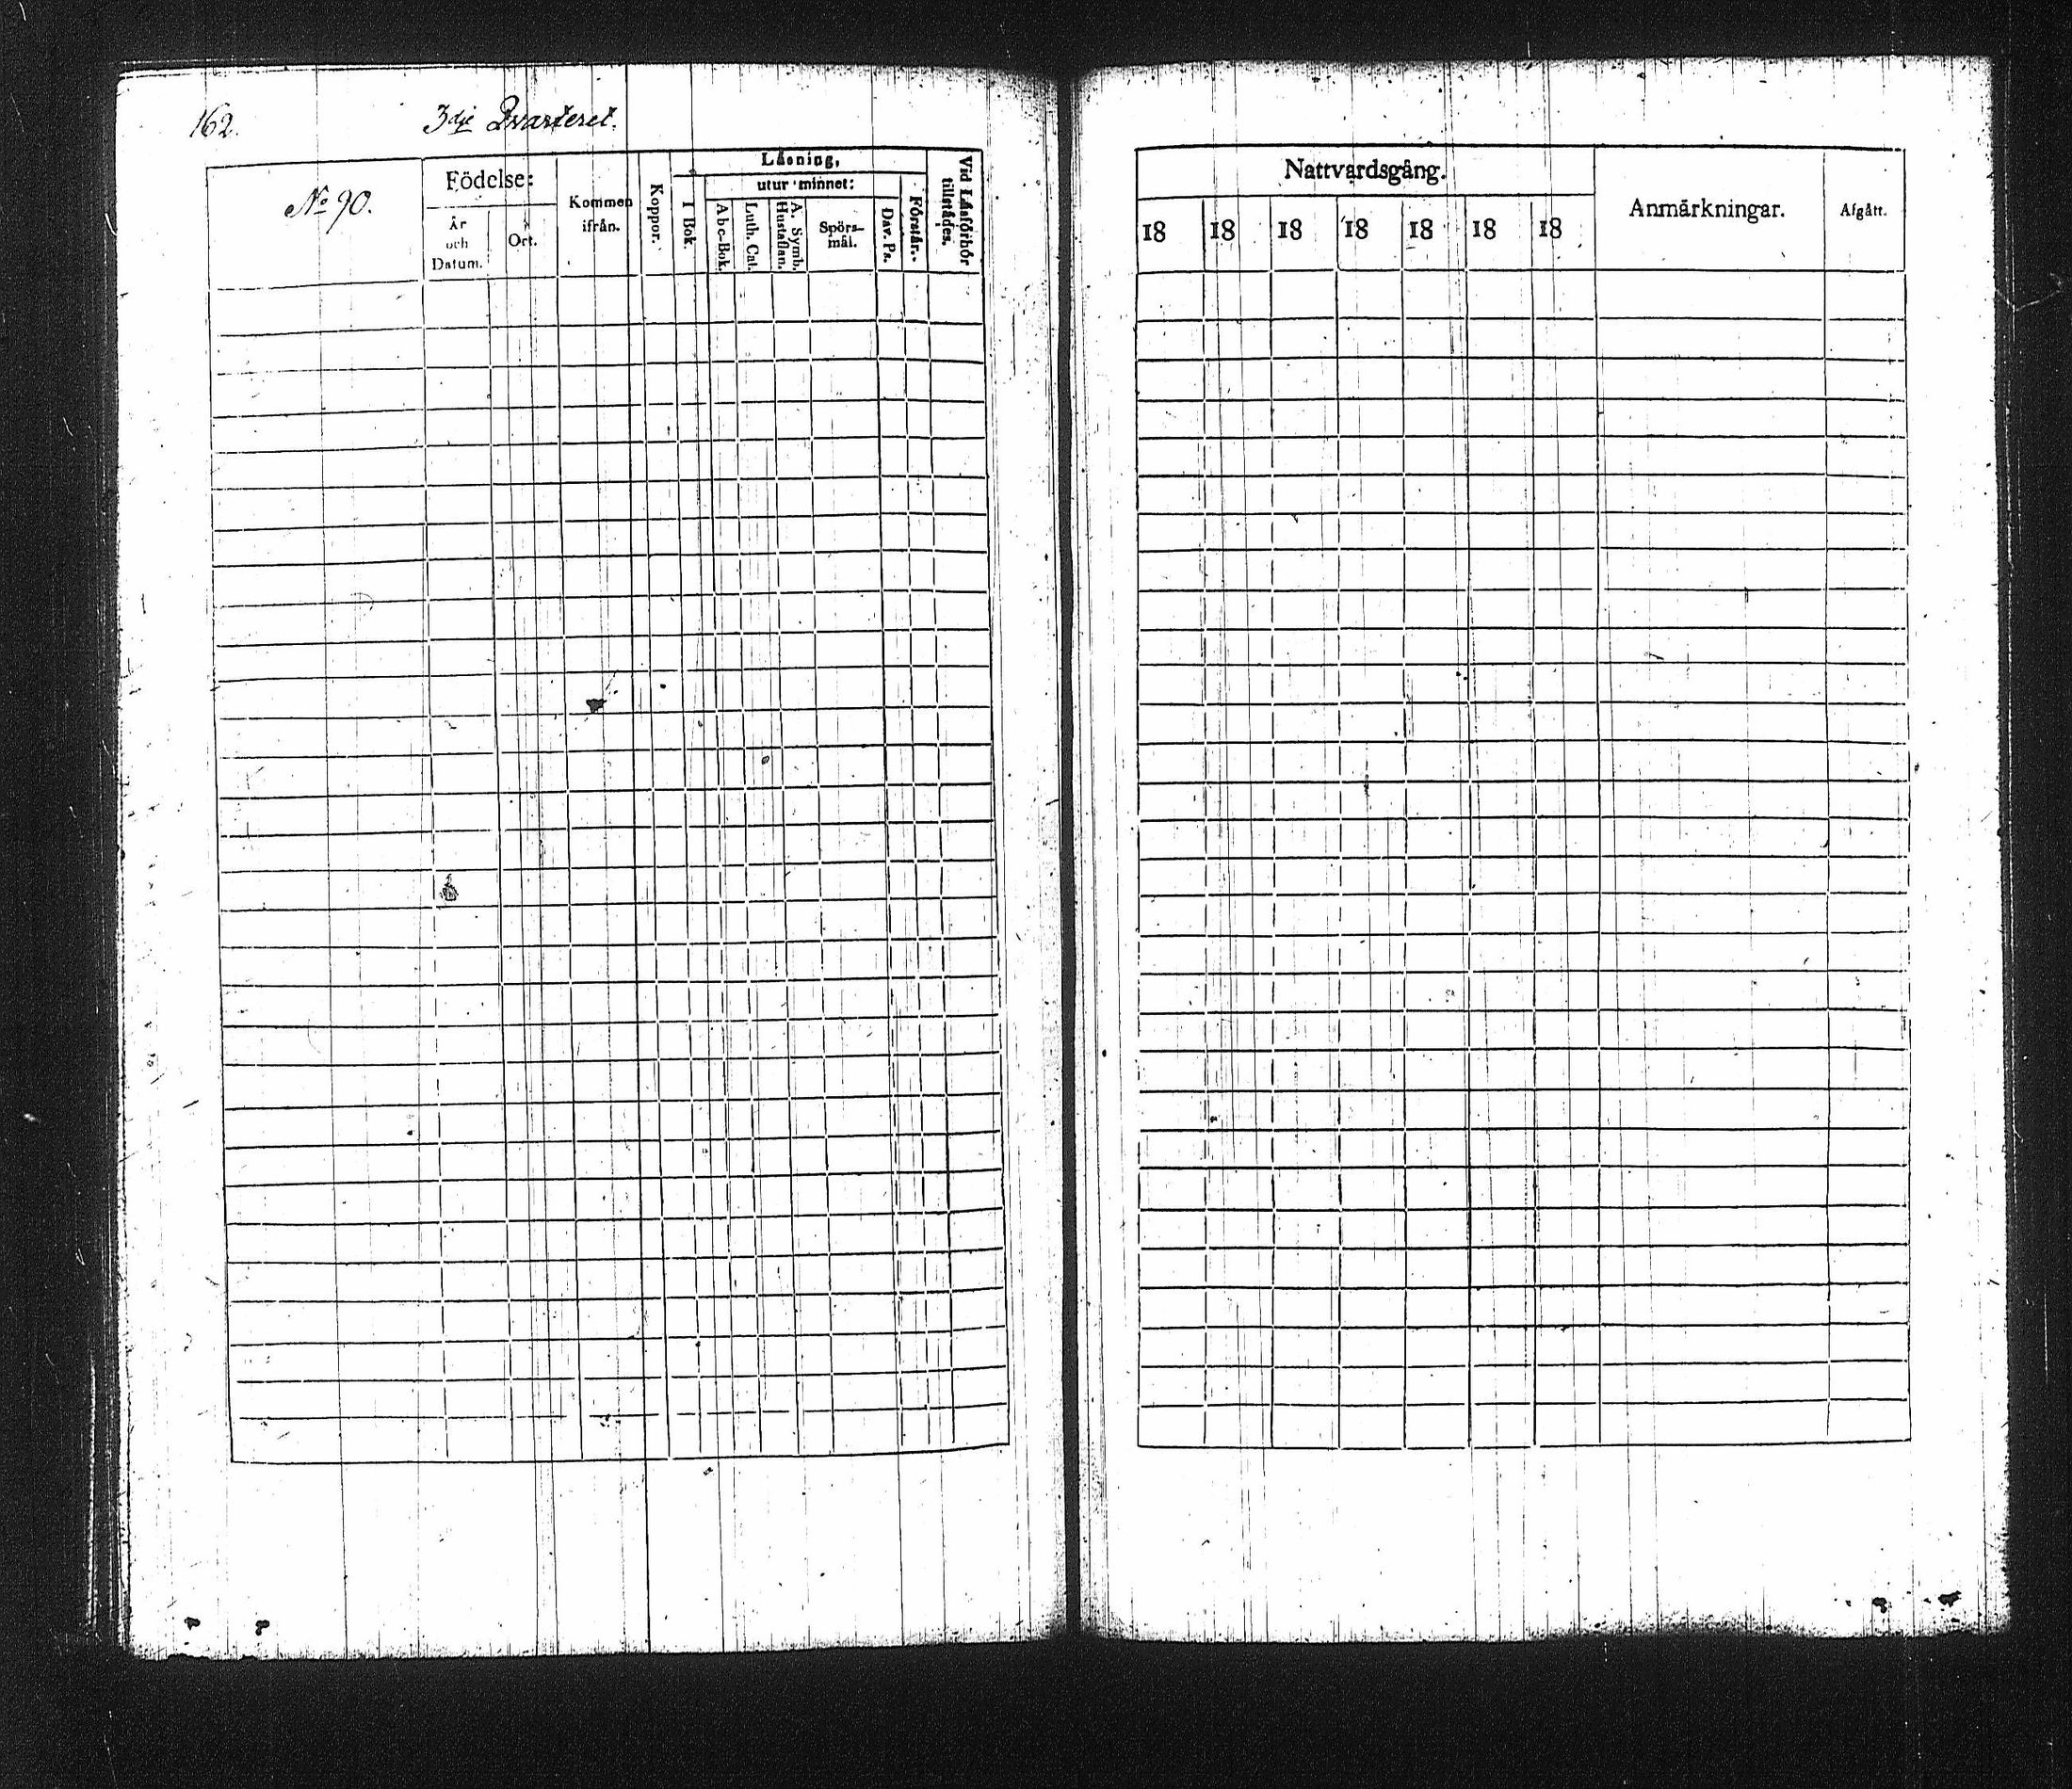 162.
3dje Qvarteret.
No 90.
Födelse:
År och Datum.
Ort.
Kommen ifrån.
Koppor.
Läsning,
I Bok.
utur minnet:
Abc-Bok.
Luth. Cat.
A. Symb. Hustaflan.
Spörs-mål.
Dav. Ps.
Förstår.
Vid Läsförhör tillstädes.
Nattvardsgång.
18 18 18 18 18 18 18
Anmärkningar.
Afgått.